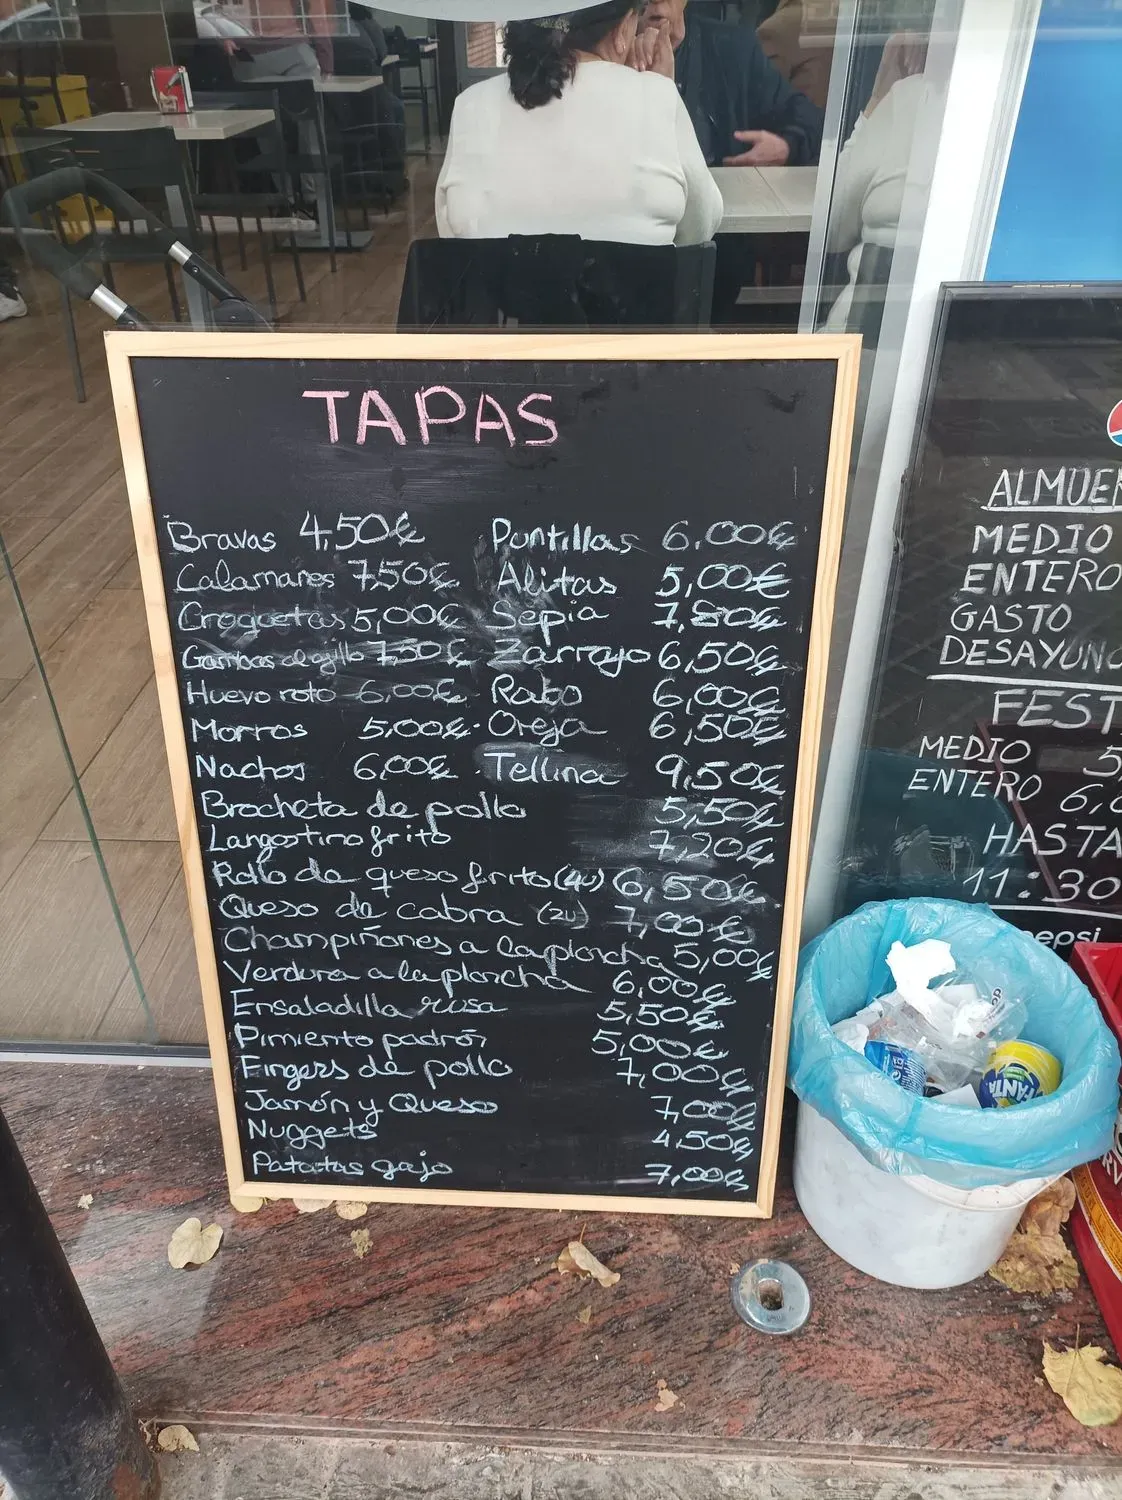 TAPAS
Bravas 4,50€ Puntillas 6,00€
Calamares 7,50€ Alitas 5,00€
Croquetas 5,00€ Sepia 7,80€
Gambas al ajillo 7,50€ Zarrajo 6,50€
Huevo roto 6,00€ Rabo 6,00€
Morros 5,00€ Oreja 6,50€
Nachos 6,00€ Tellina 9,50€
Brocheta de pollo 5,50€
Langostino frito 7,20€
Rollo de queso frito (4u) 6,50€
Queso de cabra (2u) 7,00€
Champiñones a la plancha 5,00€
Verdura a la plancha 6,00€
Ensaladilla rusa 5,50€
Pimiento padrón 5,00€
Fingers de pollo 7,00€
Jamón y Queso 7,00€
Nuggets 4,50€
Patatas gajo 7,00€
ALMUER
MEDIO
ENTERO
GASTO
DESAYUNO
FEST
MEDIO 5,
ENTERO 6,0
HASTA
11:30
pepsi
FANTA